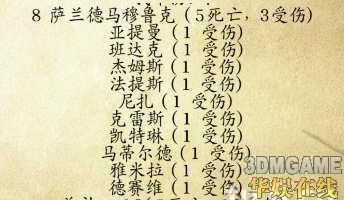 8 萨兰德马穆鲁克（5死亡，3受伤）
亚提曼（1 受伤）
班达克（1 受伤）
杰姆斯（1 受伤）
法提斯（1 受伤）
尼扎（1 受伤）
克雷斯（1 受伤）
凯特琳（1 受伤）
马蒂尔德（1 受伤）
雅米拉（1 受伤）
德赛维（1 受伤）
3DMGAME
华娱在线